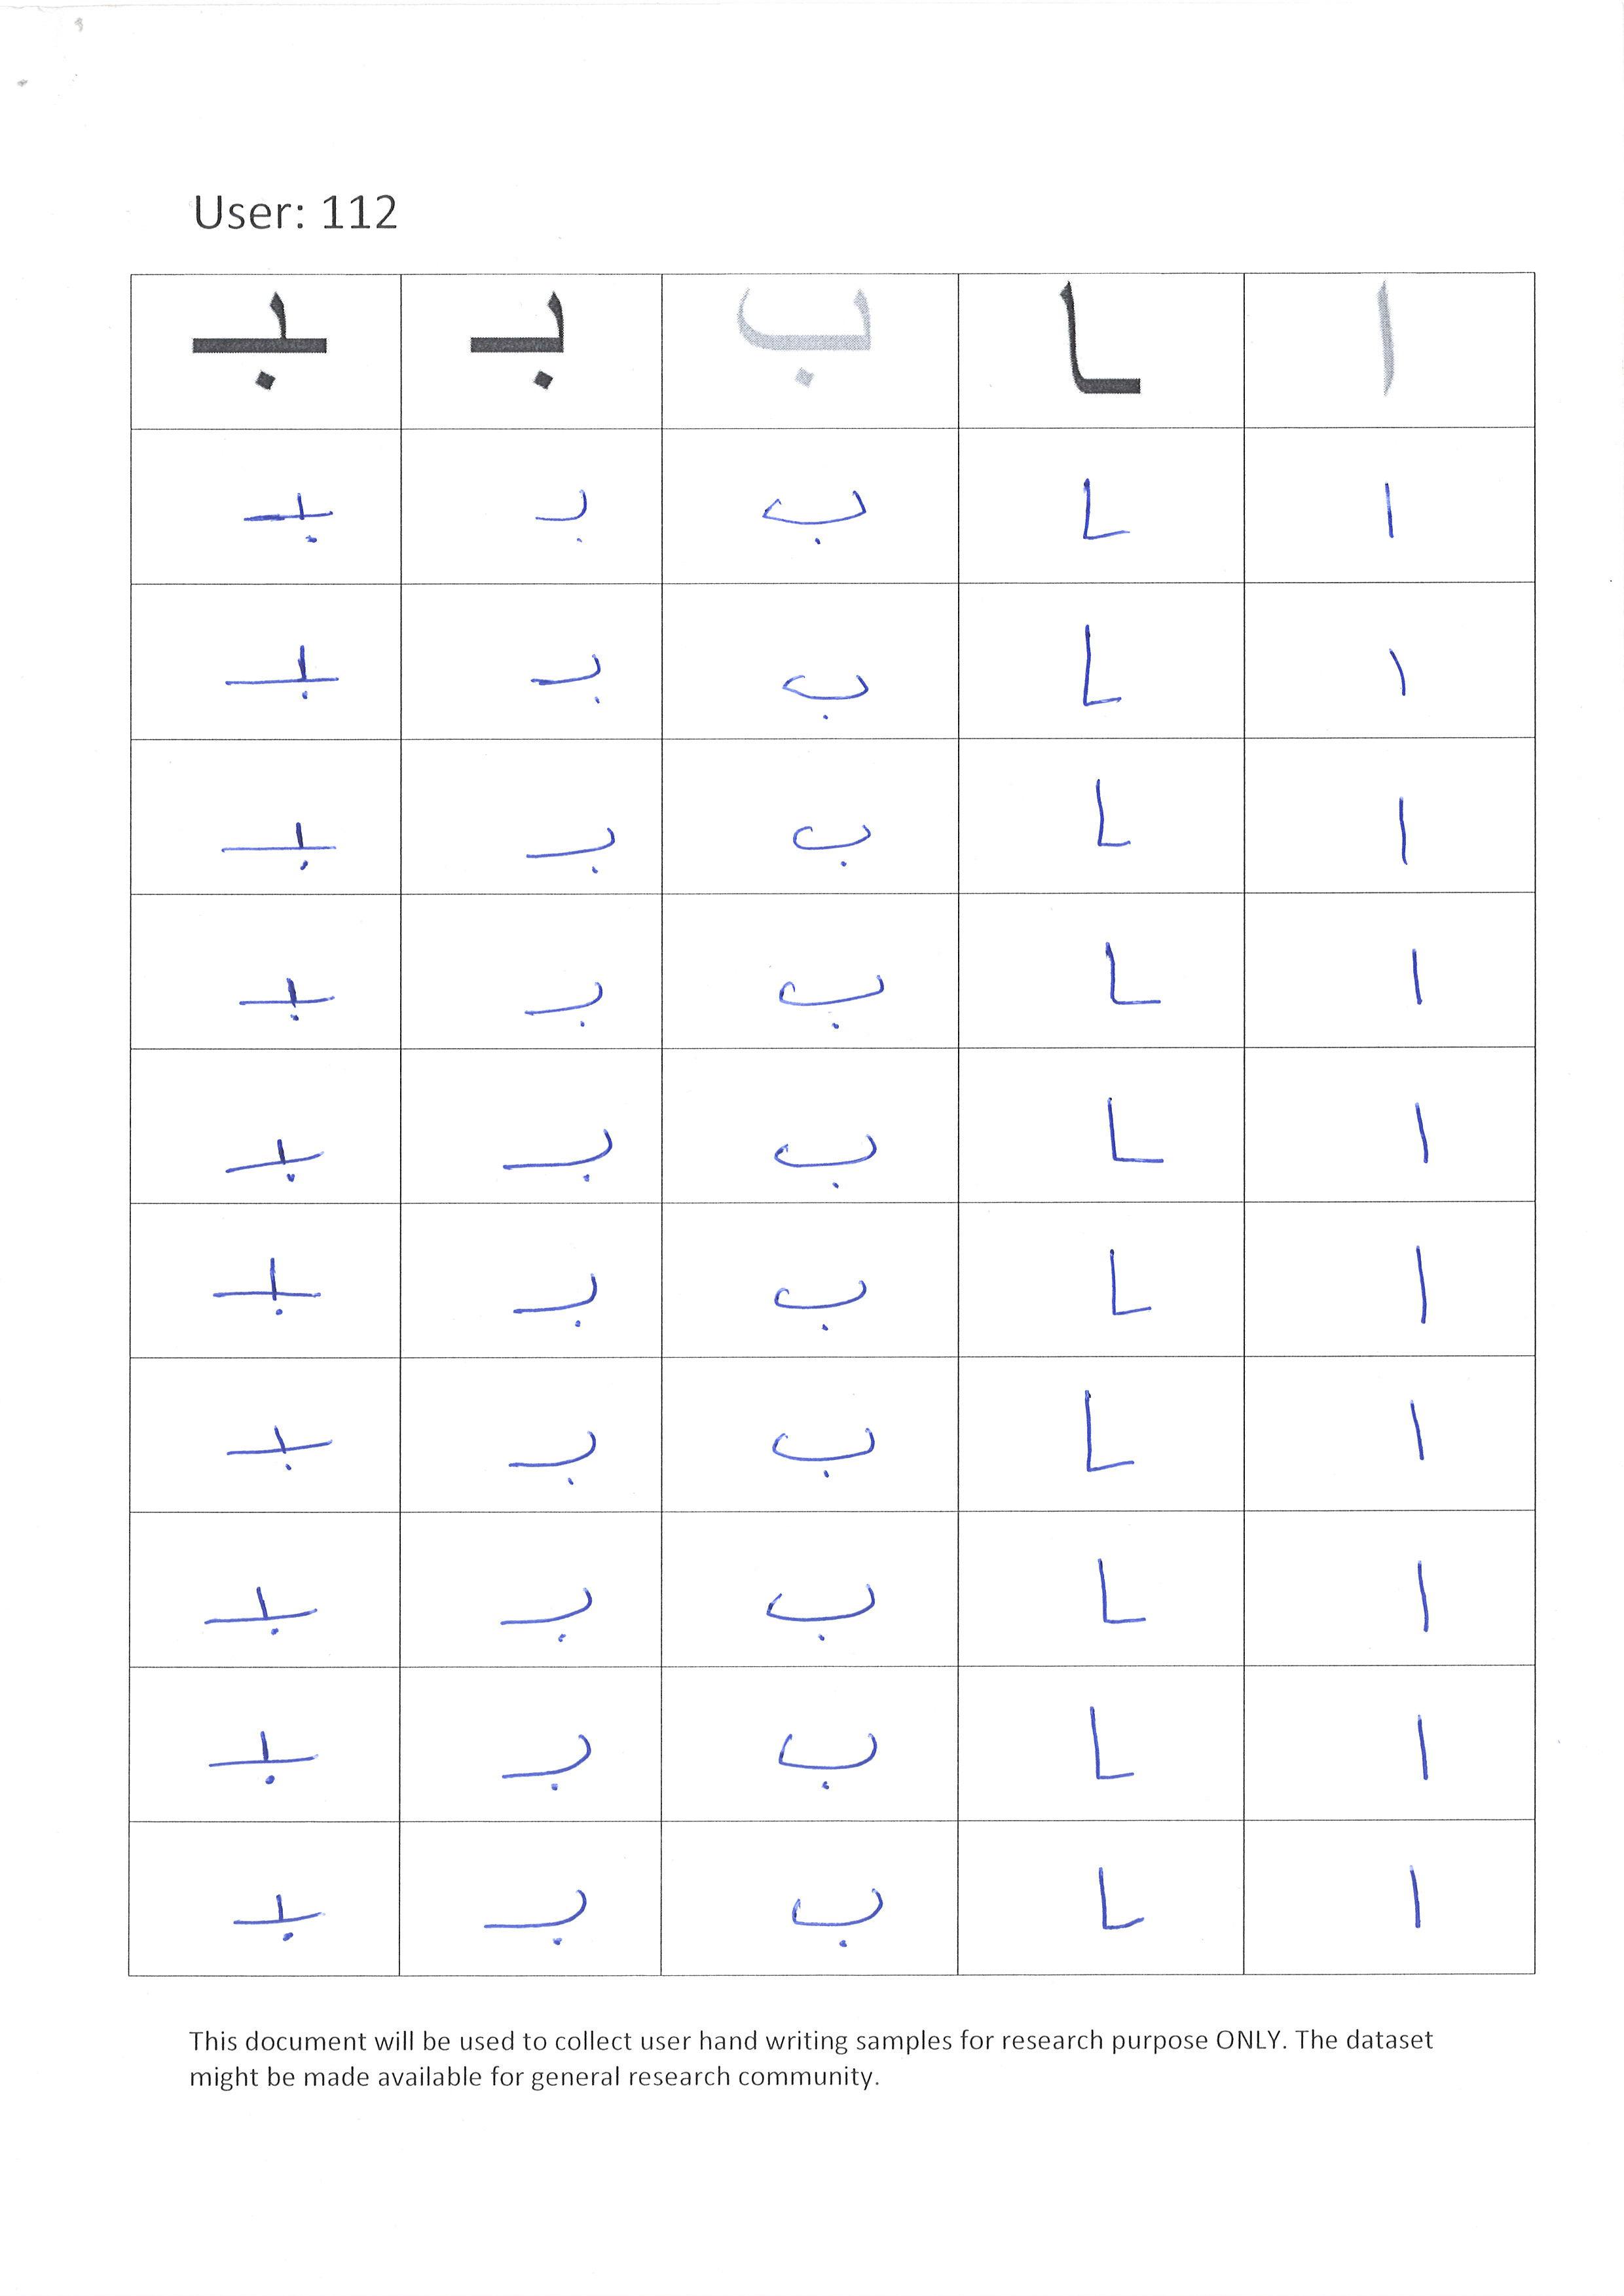 User: 112
ا ـا ب بـ ـبـ
ا ـا ب بـ ـبـ
ا ـا ب بـ ـبـ
ا ـا ب بـ ـبـ
ا ـا ب بـ ـبـ
ا ـا ب بـ ـبـ
ا ـا ب بـ ـبـ
ا ـا ب بـ ـبـ
ا ـا ب بـ ـبـ
ا ـا ب بـ ـبـ
ا ـا ب بـ ـبـ
This document will be used to collect user hand writing samples for research purpose ONLY. The dataset
might be made available for general research community.